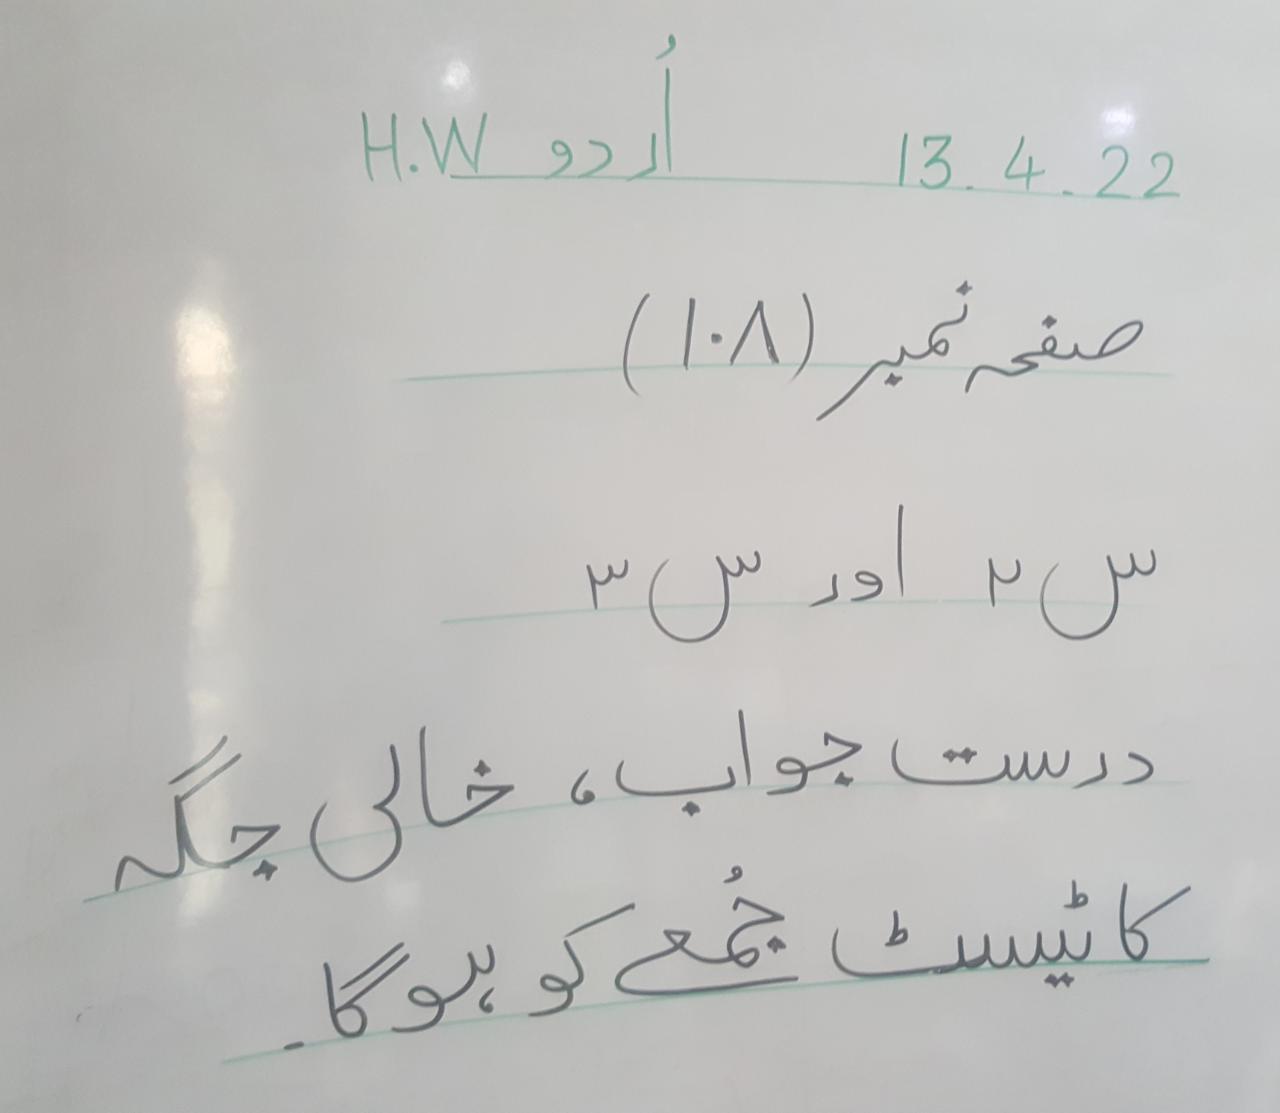 13.4.22 اُردو H.W
صفحہ نمبر (۱۰۸)
س ۲ اور س ۳
درست جواب، خالی جگہ
کا ٹیسٹ جُمعے کو ہوگا۔